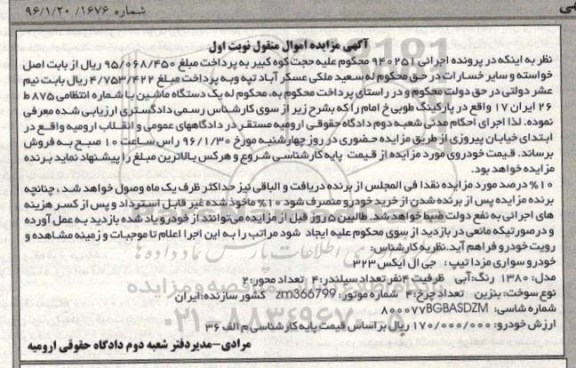 شماره ۱۶۷۶/ ۹۶/۱/۲۰
آگهی مزایده اموال منقول نوبت اول
نظر به اینکه در پرونده اجرائی ۹۴۰۲۵۱ محکوم علیه حجت کوه کبیر به پرداخت مبلغ ۹۵/۰۶۸/۴۵۰ ریال از بابت اصل
خواسته و سایر خسارات در حق محکوم له سعید ملکی عسکر آباد تپه و به پرداخت مبلغ ۴/۷۵۳/۴۲۲ ریال بابت نیم
عشر دولتی در حق دولت محکوم و در راستای پرداخت محکوم به، محکوم له یک دستگاه ماشین با شماره انتظامی ۸۷۵ ط
۲۶ ایران ۱۷ واقع در پارکینگ طوبی خ امام را که بشرح زیر از سوی کارشناس رسمی دادگستری ارزیابی شده معرفی
نموده، لذا اجرای احکام مدنی شعبه دوم دادگاه حقوقی ارومیه مستقر در دادگاههای عمومی و انقلاب ارومیه واقع در
ابتدای خیابان پیروزی از طریق مزایده حضوری در روز چهارشنبه مورخ ۹۶/۱/۳۰ راس ساعت ۱۰ صبح به فروش
برساند. قیمت خودروی مورد مزایده از قیمت پایه کارشناسی شروع و هرکس بالاترین مبلغ را پیشنهاد نماید برنده
مزایده خواهد بود.
۱۰٪ درصد مورد مزایده نقدا فی المجلس از برنده دریافت و الباقی نیز حداکثر ظرف یک ماه وصول خواهد شد، چنانچه
برنده مزایده پس از برنده شدن از خرید خودرو منصرف شود ۱۰٪ ماخوذ شده غیر قابل استرداد و پس از کسر هزینه
های اجرائی به نفع دولت ضبط خواهد شد. طالبین ۵ روز قبل از مزایده می توانند از خودرو یاد شده بازدید به عمل آورده
و در صورتیکه مانعی در بازدید از سوی محکوم علیه ایجاد شود مراتب را به این اجرا اعلام تا موجبات و زمینه مشاهده و
رویت خودرو فراهم آید. نظریه کارشناس:
خودرو سواری مزدا تیپ: جی ال ایکس ۳۲۳
مدل: ۱۳۸۰ رنگ: آبی ظرفیت: ۴ نفر تعداد سیلندر: ۴ تعداد محور: ۲
نوع سوخت: بنزین تعداد چرخ: ۴ شماره موتور: zm366799 کشور سازنده: ایران
شماره شاسی: ۸۰۰۰۷۷BGBASDZM
ارزش خودرو: ۱۷۰/۰۰۰/۰۰۰ ریال بر اساس قیمت پایه کارشناسی م الف ۳۶
مرادی-مدیر دفتر شعبه دوم دادگاه حقوقی ارومیه
۰۲۱-۸۸۳۴۹۶۷۰